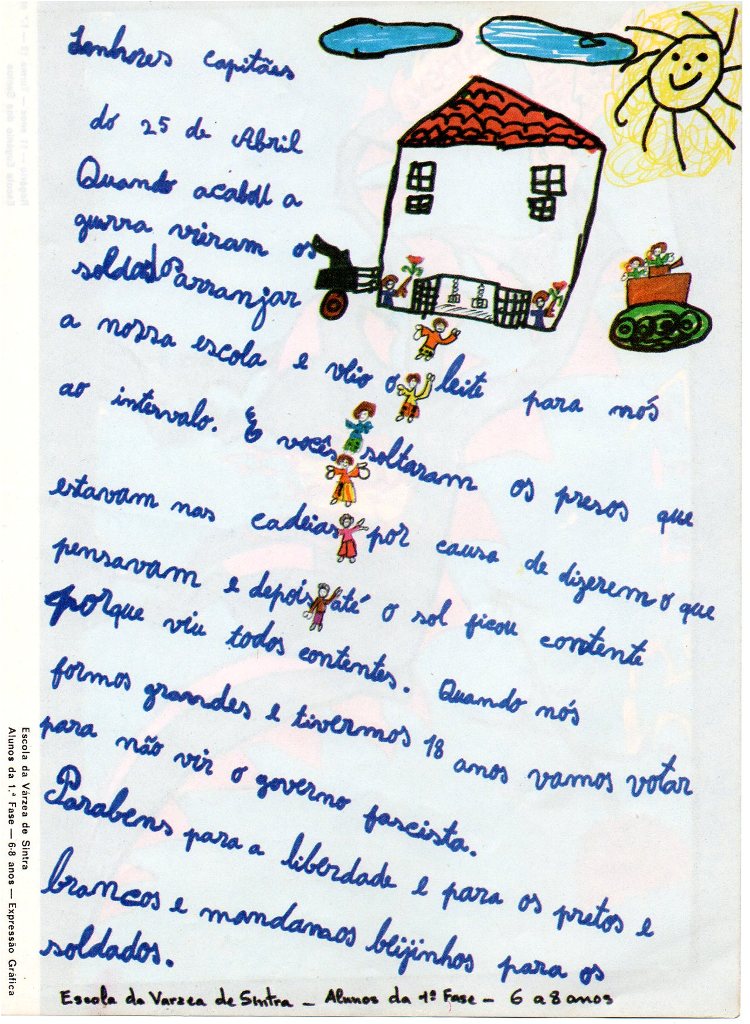 Senhores capitães
do 25 de Abril
Quando acabou a
guerra vieram os
soldados arranjar
a nossa escola e veio o leite para nós
ao intervalo. E vocês soltaram os presos que
estavam nas cadeias por causa de dizerem o que
pensavam e depois até o sol ficou contente
porque viu todos contentes. Quando nós
formos grandes e tivermos 18 anos vamos votar
para não vir o governo fascista.
Parabens para a liberdade e para os pretos e
brancos e mandamos beijinhos para os
soldados.
Escola da Varzea de Sintra - Alunos da 1ª Fase - 6 a 8 anos
Escola da Várzea de Sintra
Alunos da 1.ª Fase — 6-8 anos — Expressão Gráfica